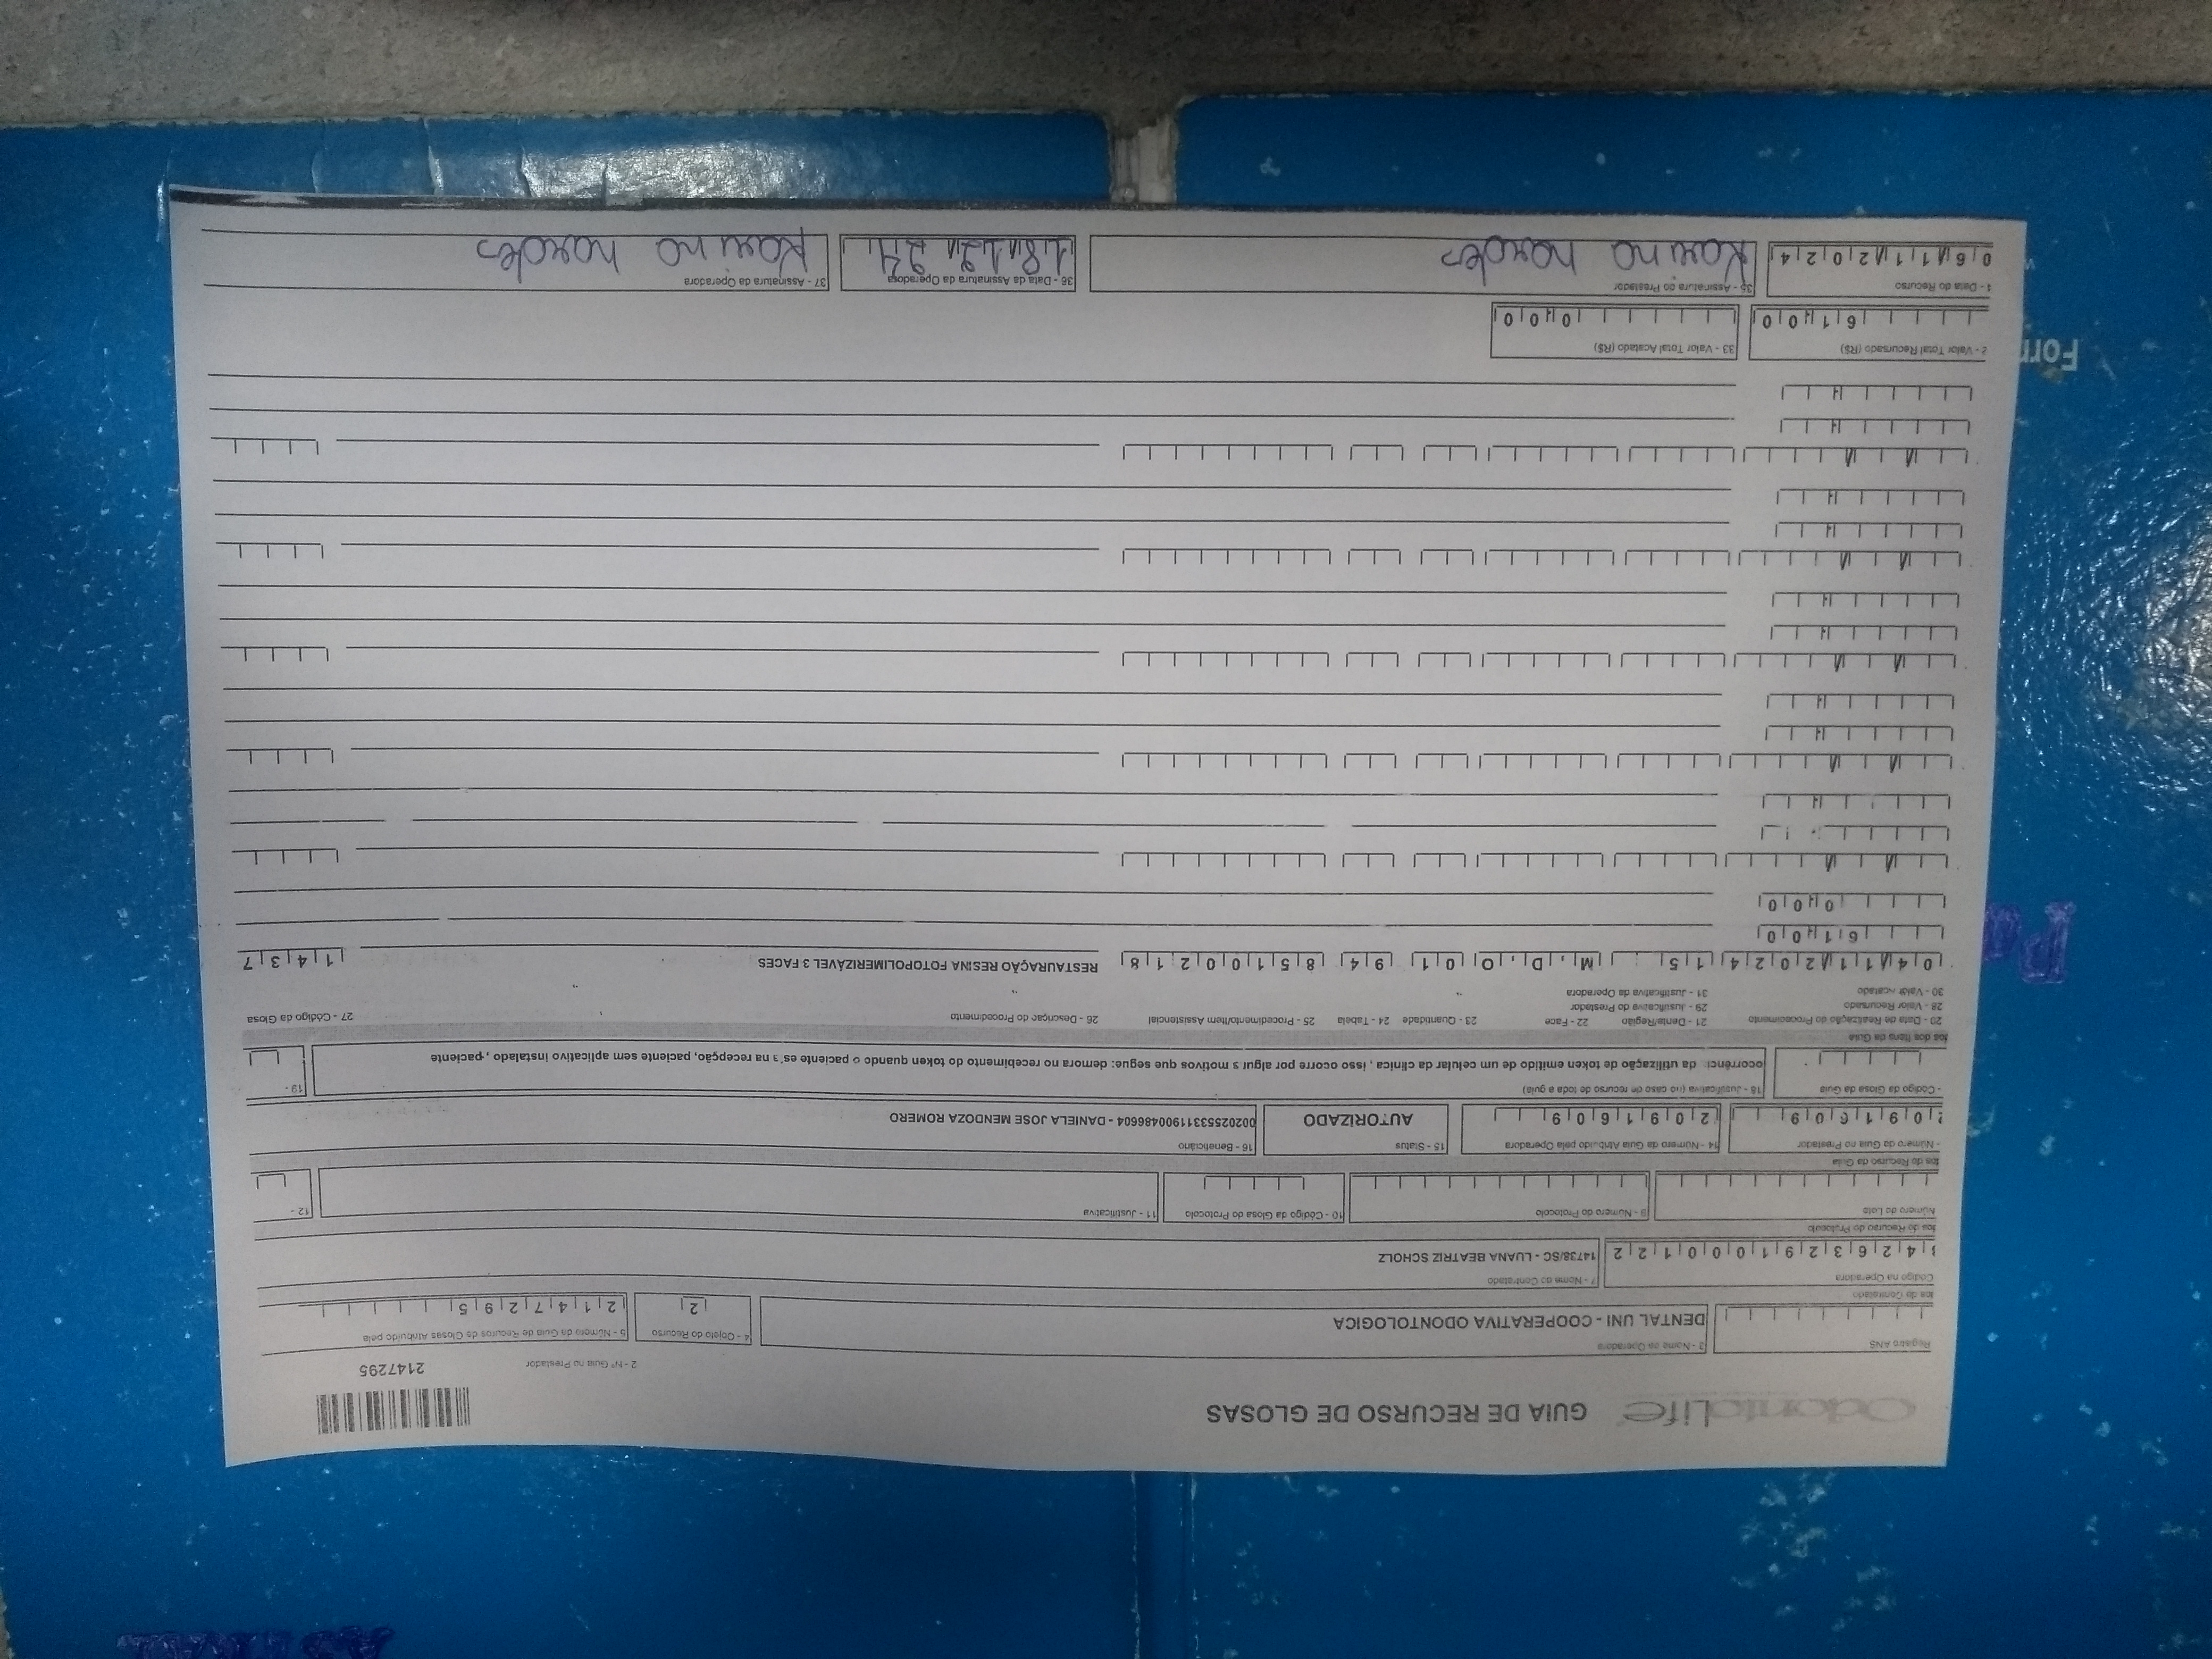 OdontoLife GUIA DE RECURSO DE GLOSAS
2 - Nº Guia no Prestador 2147295
Registro ANS
3 - Nome da Operadora
DENTAL UNI - COOPERATIVA ODONTOLOGICA
4 - Objeto do Recurso
2
5 - Número da Guia de Recuros de Glosas Atribuído pela
2147295
dos do Contratado
Código na Operadora
42632910001 22
7 - Nome do Contratado
14738/SC - LUANA BEATRIZ SCHOLZ
dos do Recurso do Protocolo
Número do Lote
9 - Número do Protocolo
10 - Código da Glosa do Protocolo
11 - Justificativa
12 -
dos do Recurso da Guia
- Número da Guia no Prestador
14 - Número da Guia Atribuído pela Operadora
20916609
15 - Status
AUTORIZADO
16 - Beneficiário
00202533119000486604 - DANIELA JOSE MENDOZA ROMERO
- Código da Glosa da Guia
18 - Justificativa (no caso de recurso de toda a guia)
da utilização de token emitido de um celular da clinica , isso ocorre por motivos que segue: demora no recebimento do token quando o paciente na recepção, paciente sem aplicativo instalado , paciente
19 -
dos dos Itens da Guia
20 - Data de Realização do Procedimento 21 - Dente/Região 22 - Face 23 - Quantidade 24 - Tabela 25 - Procedimento/Item Assistencial 26 - Descrição do Procedimento 27 - Código da Glosa
28 - Valor Recursado 29 - Justificativa do Prestador
30 - Valor Acatado 31 - Justificativa da Operadora
04/11/2024 15 M,D,O 01 94 85100218 RESTAURAÇÃO RESINA FOTOPOLIMERIZÁVEL 3 FACES 1437
61,00
0,00
2 - Valor Total Recursado (R$)
61,00
33 - Valor Total Acatado (R$)
0,00
- Data do Recurso
06/11/2024
35 - Assinatura do Prestador
36 - Data da Assinatura da Operadora
18/12/24
37 - Assinatura da Operadora